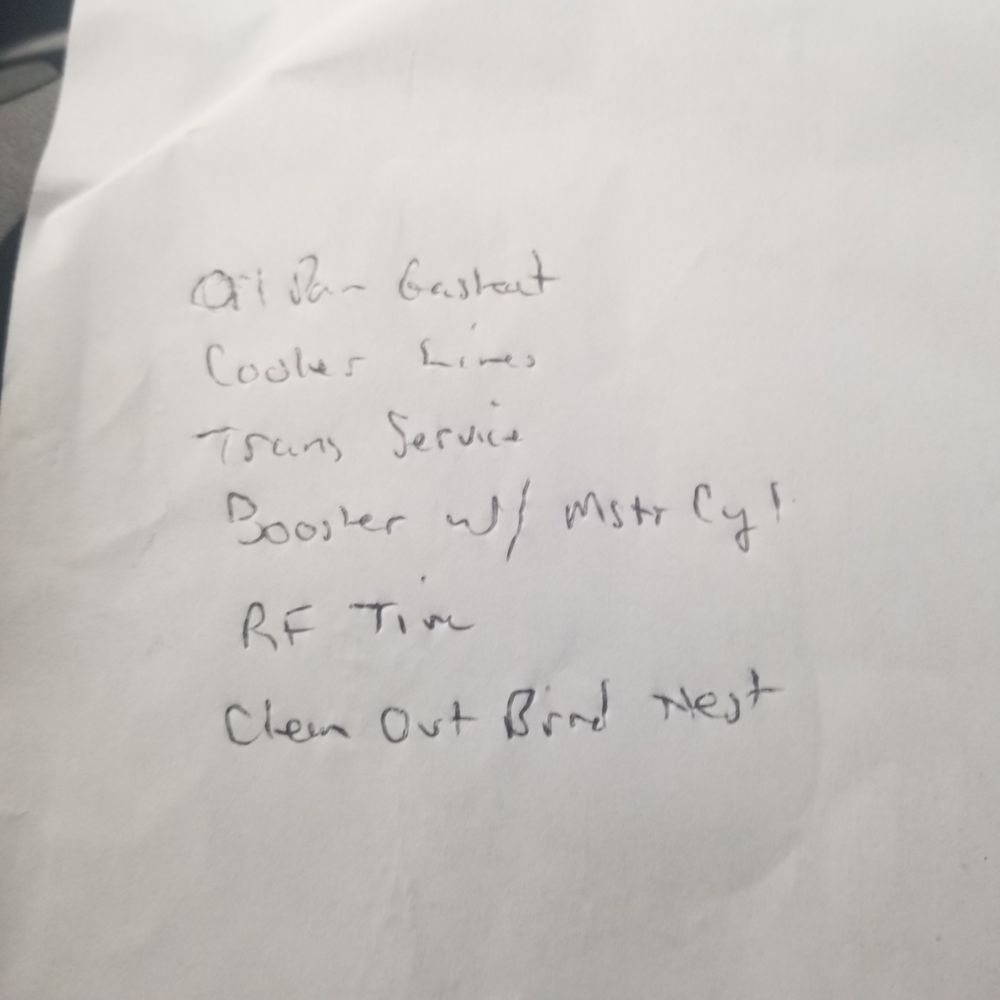 Oil Pan Gasket
Cooler Lines
Trans Service
Booster w/ Mstr Cyl
RF Tire
Clean Out Bird Nest